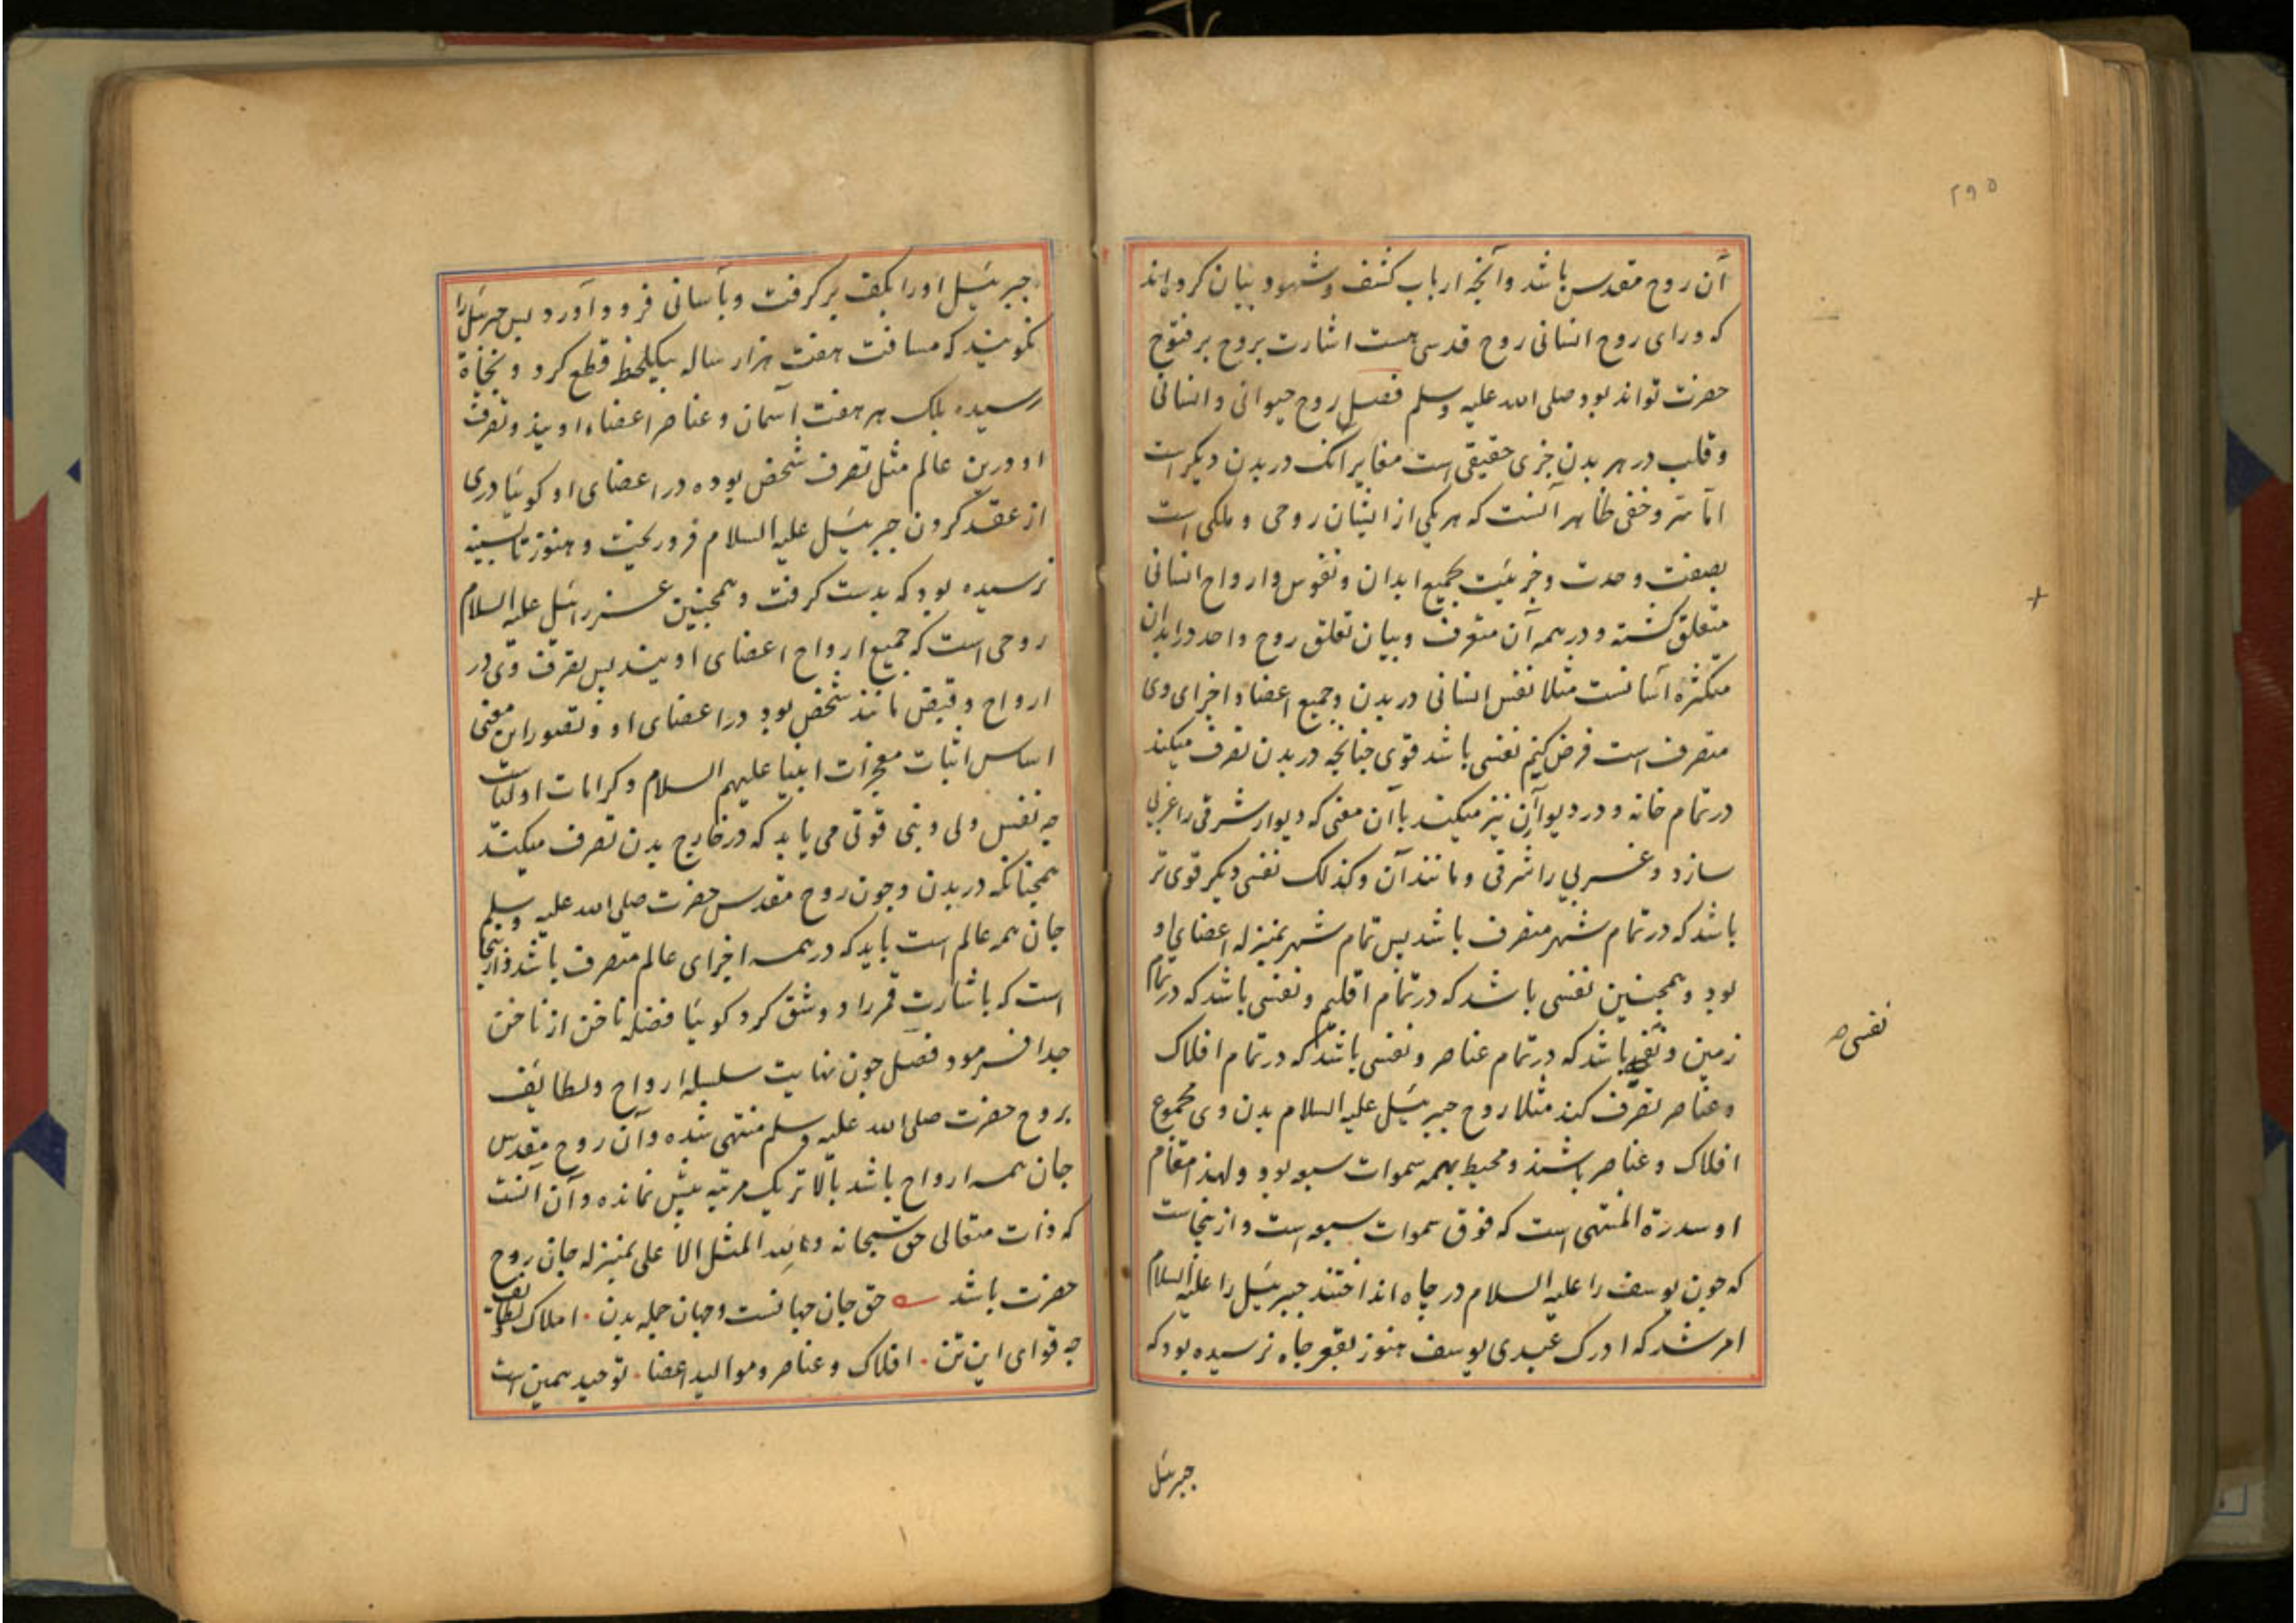 ۲۹۵
آن روح مقدس باشد وآنچه ارباب کشف وشهود بیان کرده‌اند
که ورای روح انسانی روح قدسی هست اشارت بروح پر فتوح
حضرت تواند بود صلی الله علیه وسلم فصل روح حیوانی وانسانی
وقلب در هر بدن جزی حقیقی است مغایر آنک در بدن دیگر است
اما سر وخفی ظاهر آنست که هر یکی از ایشان روحی وملکی است
بصفت وحدت وجزئیت بجمیع ابدان ونفوس وارواح انسانی
متعلق گشته ودر همه آن متصرف وبیان تعلق روح واحد در ابدان
متکثره آسانست مثلا نفس انسانی در بدن وجمیع اعضا واجزای وی
متصرف است فرض کنیم نفسی باشد قوی چنانچه در بدن تصرف میکند
در تمام خانه ودر دیوار آن نیز میکند بآن معنی که دیوار شرقی را غربی
سازد وغربی را شرقی ومانند آن وکذلک نفسی دیگر قوی تر
باشد که در تمام شهر متصرف باشد پس تمام شهر بمنزله اعضای او
بود وهمچنین نفسی باشد که در تمام اقلیم ونفسی باشد که در تمام
زمین ونفسی باشد که در تمام عناصر ونفسی باشد که در تمام افلاک
وعناصر تصرف کند مثلا روح جبرئیل علیه السلام بدن وی مجموع
افلاک وعناصر باشند ومحیط بهمه سموات سبع بود ولهذا مقام
او سدرة المنتهی است که فوق سموات سبع است وازینجاست
که چون یوسف را علیه السلام در چاه انداختند جبرئیل را علیه السلام
امر شد که ادرک عبدی یوسف هنوز بقعر چاه نرسیده بود که
نفسی صح
جبرئیل
جبرئیل اورا بکف بر گرفت وبآسانی فرود آورد پس جبرئیل را
نگویند که مسافت هفت هزار ساله بیکلحظه قطع کرد
رسیده بلک هر هفت آسمان وعناصر اعضاء اویند وتصرف
او درین عالم مثل تصرف شخص بوده در اعضای او گوئیا دری
از عقد گردن جبرئیل علیه السلام فرو ریخت وهنوز تا سینه
نرسیده بود که بدست گرفت وهمچنین عزرائیل علیه السلام
روحی است که جمیع ارواح اعضای اویند پس تصرف وی در
ارواح وقبض مانند شخص بود در اعضای او وتصور این معنی
اساس اثبات معجزات انبیا علیهم السلام وکرامات اولیاست
چه نفس ولی ونبی قوتی می یابد که در خارج بدن تصرف میکند
همچنانکه در بدن وچون روح مقدس حضرت صلی الله علیه وسلم
جان همه عالم است باید که در همه اجزای عالم متصرف باشد وازینجا
است که باشارت قمر را دو شق کرد گوئیا فضله ناخن از ناخن
جدا فرمود فصل چون نهایت سلسله ارواح ولطایف
بروح حضرت صلی الله علیه وسلم منتهی شده وآن روح مقدس
جان همه ارواح باشد بالاتر یک مرتبه بیش نمانده وآن آنست
که ذات متعالی حق سبحانه ولله المثل الاعلی بمنزله جان روح
حضرت باشد حق جان جهانست وجهان جمله بدن . املاک لطایف
چه قوای این تن . افلاک وعناصر وموالید اعضا . توحید همین است